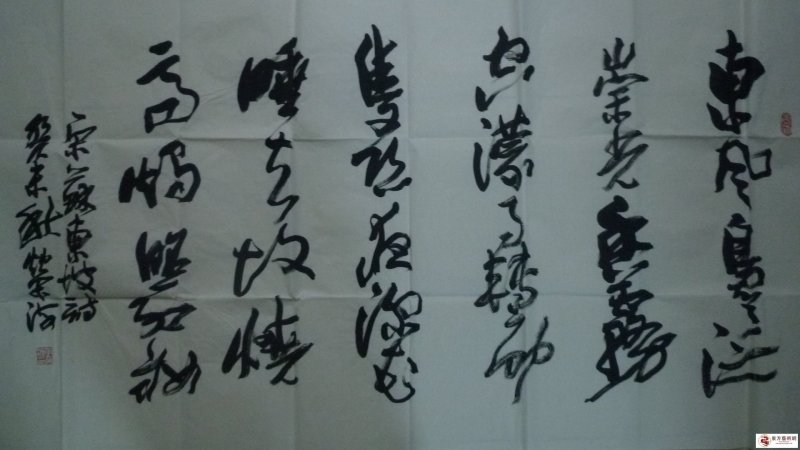 東風裊裊泛
崇光香霧
空濛月轉廊
隻恐夜深花
睡去故燒
高燭照紅妝
宋蘇東坡詩
癸未秋